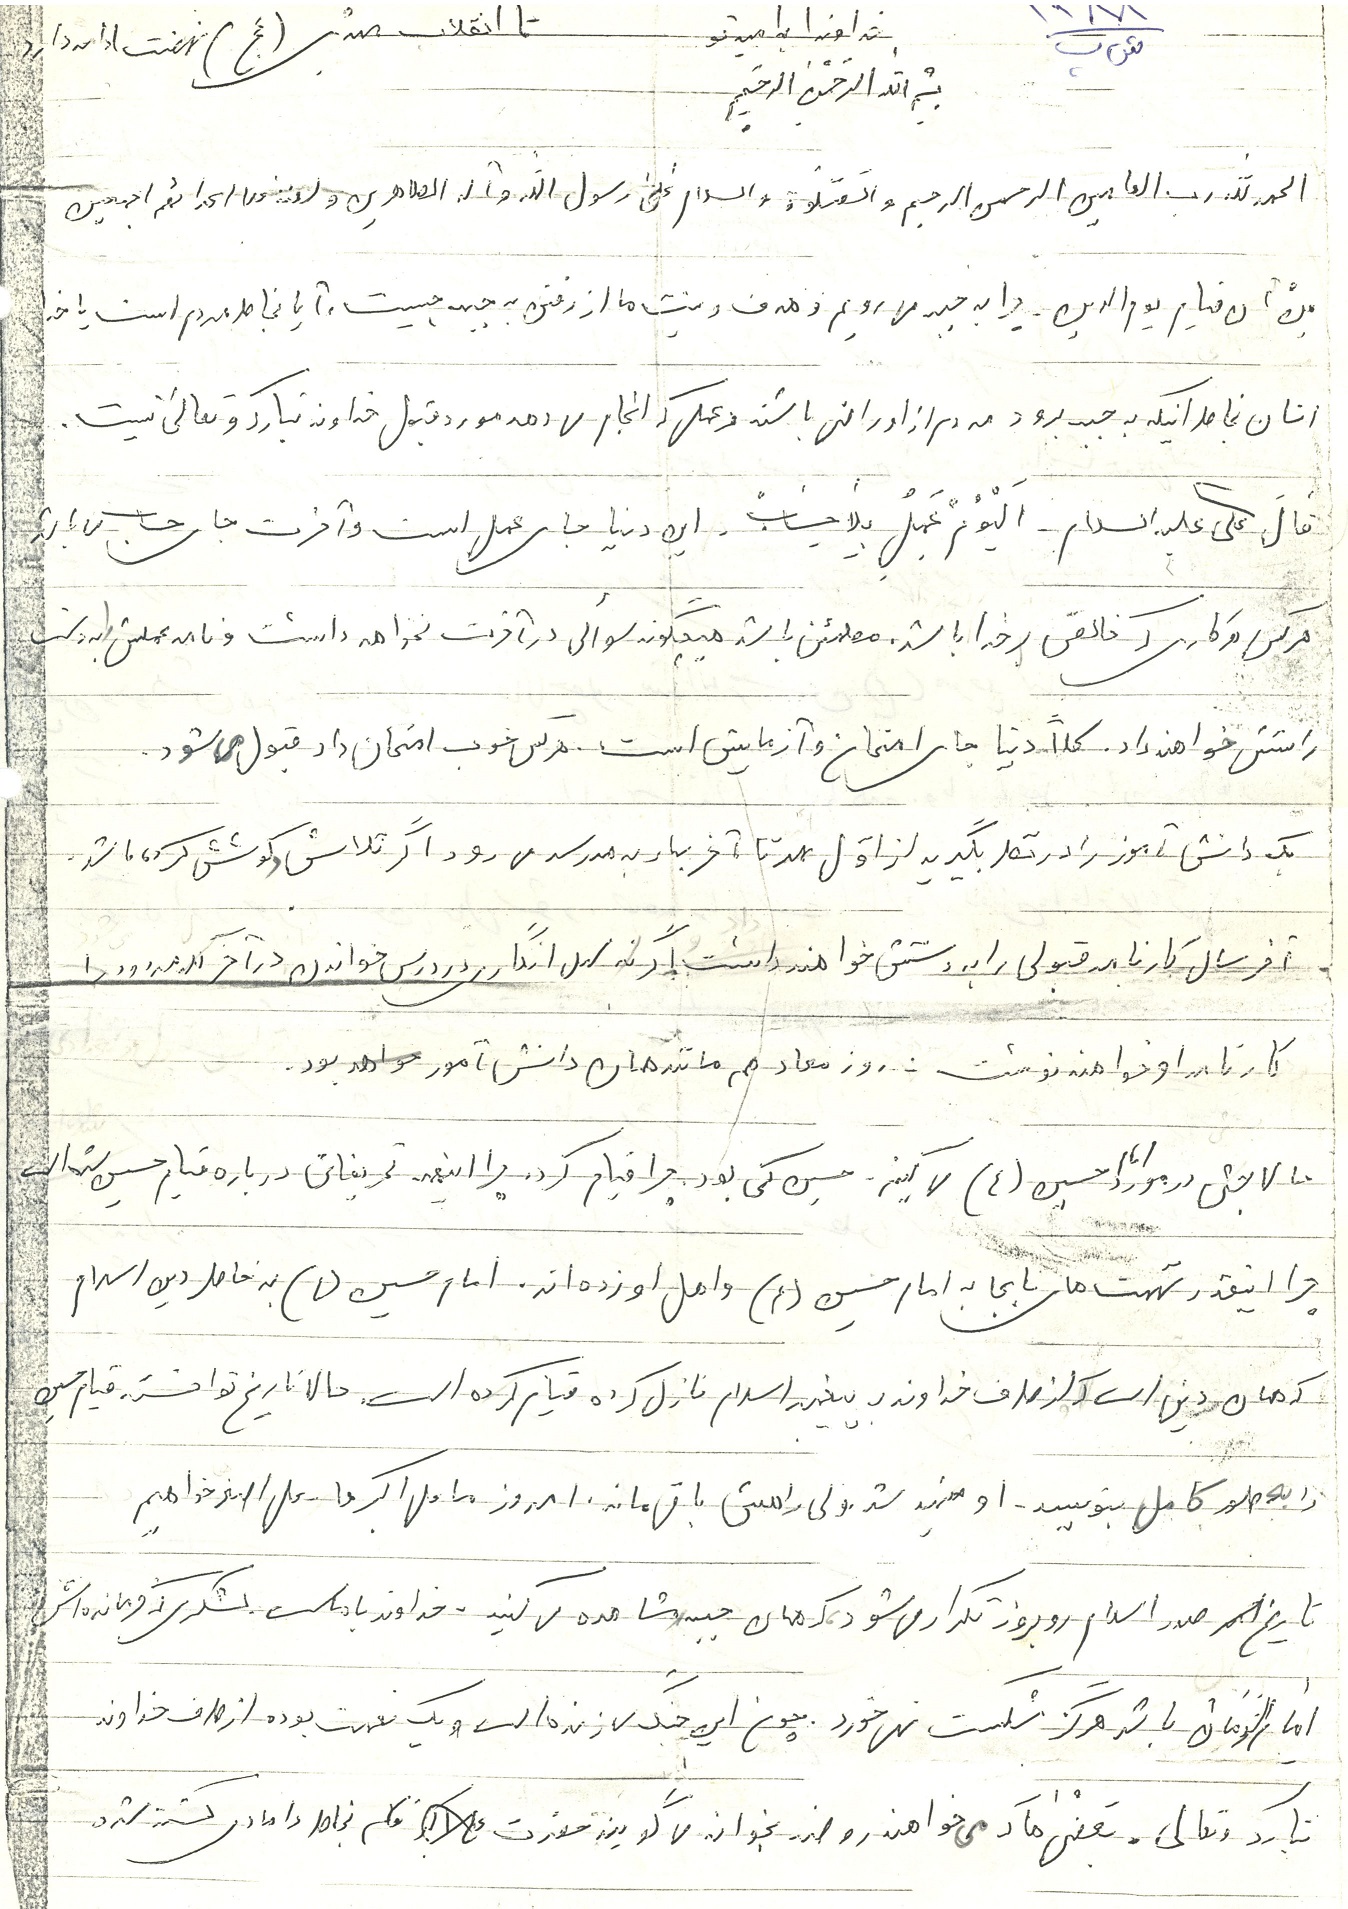 خداوندا به امید تو تا انقلاب مهدی (عج) نهضت ادامه دارد
بِسْمِ اللهِ الرَّحْمٰنِ الرَّحیمِ
الحمد لله رب العالمین الرحمن الرحیم و الصّلوة والسلام علیٰ رسول الله وآله الطاهرین و لعنة الله علی اعدائهم اجمعین
مِنْ آلان قیام یوم الدین . چرا به جبهه می رویم و هدف و نیت ما از رفتن به جبهه چیست ، آیا بخاطر مردم است یا خدا
انسان بخاطر اینکه به جبهه برود مردم از او راضی باشند و عملی که انجام می دهد مورد قبول خداوند تبارک و تعالیٰ نیست .
قالَ علی علیه السلام - اَلْیَوْمَ عَمِلَ بِلاٰحِسٰابْ . این دنیا جای عمل است و آخرت جای حساب می باشد
هرکس هر کاری که خالص برخدا باشد . مطمئن باشد هیچگونه سوألی در آخرت نخواهد داشت و نامه عملش را به دست
راستش خواهند داد . کلاً دنیا جای امتحان و آزمایش است . هرکس خوب امتحان داد قبول می شود .
یک دانش آموز را در نظر بگیرید از اوّل مهر تا آخر بهار به مدرسه می رود اگر تلاش و کوشش کرده باشد .
آخر سال کارنامه قبولی را به دستش خواهند داد اگر نه سهل انگاری در درس خواندن در آخر کلمه مردود را
کارنامه او خواهند نوشت . روز معاد هم مانند همان دانش آموز خواهد بود .
حالا بحثی در مورد امام حسین (ع) می کنیم . حسین کی بود چرا قیام کرد . چرا اینهمه تحریفاتی درباره قیام حسین شده است
چرا اینقدر تهمت های نابجا به امام حسین (ع) و اهل او زده اند . امام حسین (ع) به خاطر دین اسلام
که همان دینی است که از طرف خداوند بر پیغمبر اسلام نازل کرده قیام کرده است . حالا تاریخ نتوانسته قیام حسین
را به طور کامل بنویسد . او شهید شد ولی راهش باقی ماند . امروز ما علی اکبر ها علی اصغر خواهیم
تاریخ صدر اسلام روبروز تکرار می شود که همان جبهه مشاهده می کنید . خداوند با ماست . لشکری که فرمانده اش
امام زمان باشد هرگز شکست نمی خورد . چون این جنگ سازنده است و یک نعمت بوده از طرف خداوند
تبارک و تعالی . بَعضْی هٰا که می خواهند روضه بخوانند می گویند حضرت قاسم بخاطر دامادی کشته شده